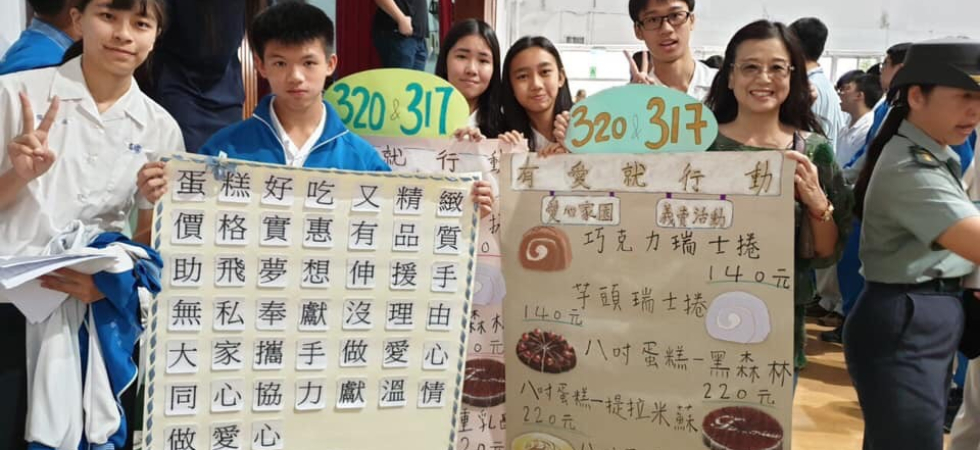 320 & 317
320 & 317
就行動
蛋糕好吃又精緻
價格實惠有品質
助飛夢想伸援手
無私奉獻沒理由
大家攜手做愛心
同心協力獻溫情
做愛心
有愛就行動
愛心家園 義賣活動
巧克力瑞士捲
140元
芋頭瑞士捲
140元
八吋蛋糕－黑森林
220元
八吋蛋糕－提拉米蘇
220元